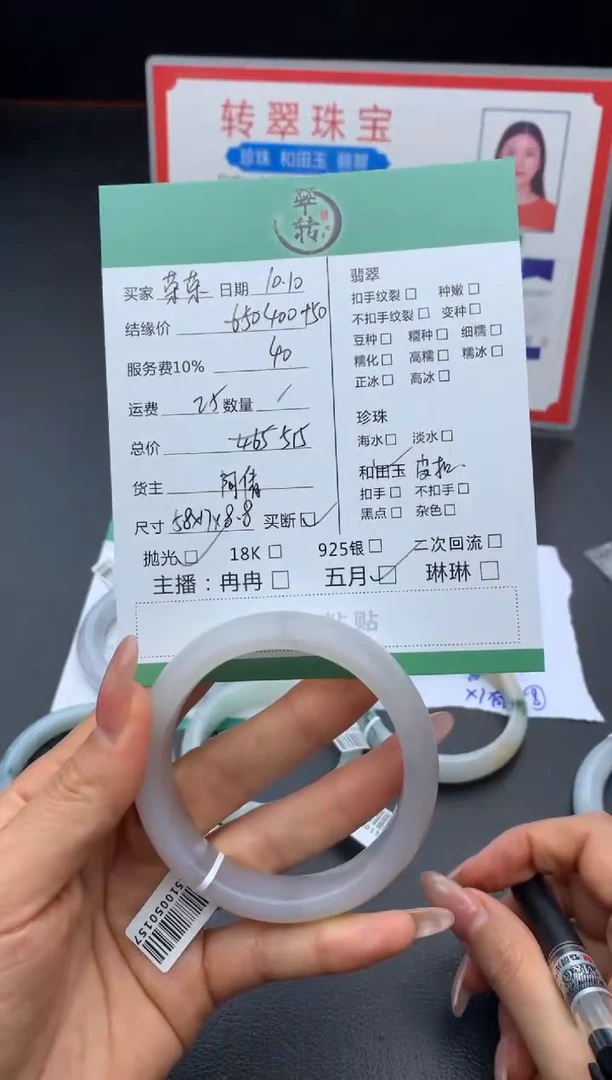 转翠珠宝
珍珠 和田玉 翡翠
翠
转
买家 菜菜 日期 10.10
结缘价 650 400+50
服务费10% 40
运费 25 数量 /
总价 465 515
货主
尺寸 58×7×8.8 买断
抛光 18K 925银 二次回流
主播：冉冉 五月 琳琳
翡翠
扣手纹裂 种嫩
不扣手纹裂 变种
豆种 糯种 细糯
糯化 高糯 糯冰
正冰 高冰
珍珠
海水 淡水
和田玉
扣手 不扣手
黑点 杂色
粘贴
510050157